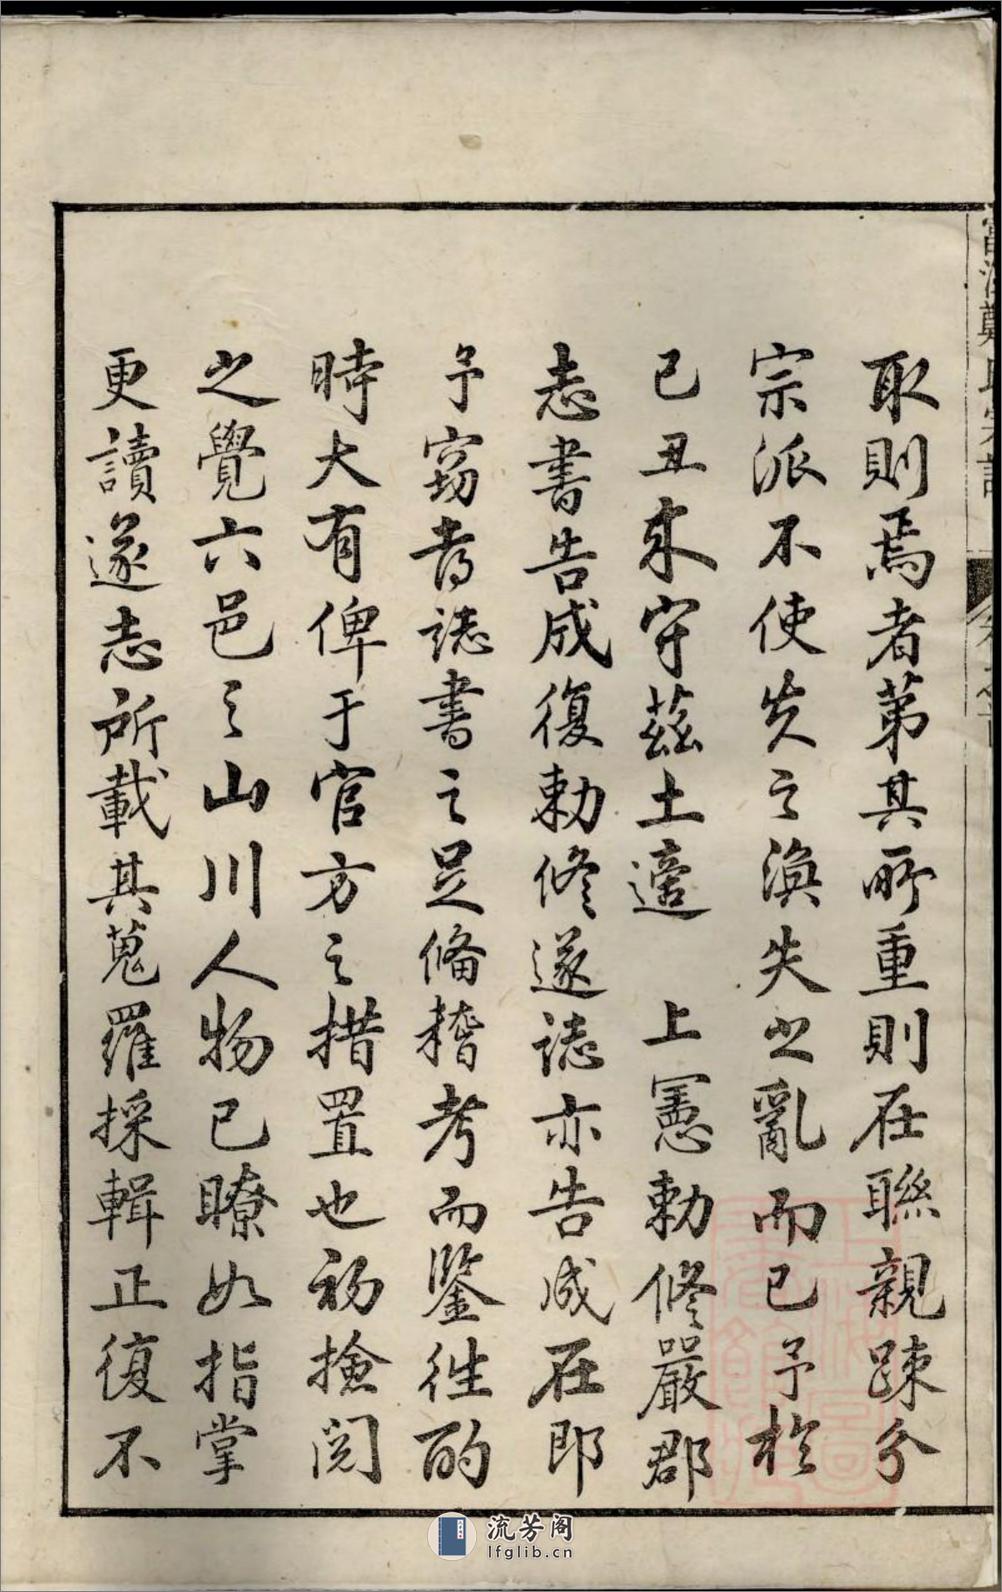 取則焉者第其所重則在聯親疎分
宗派不使失之渙失之亂而已予於
己丑来守茲土適　上憲勅修嚴郡
志書告成復勅修遂誌亦告成在即
予竊考誌書之足備稽考而鑒徃酌
時大有俾于官方之措置也初撿閲
之覺六邑之山川人物已瞭如指掌
更讀遂志所載其蒐羅採輯正復不
鄭氏宗譜
流芳阁
lfglib.cn